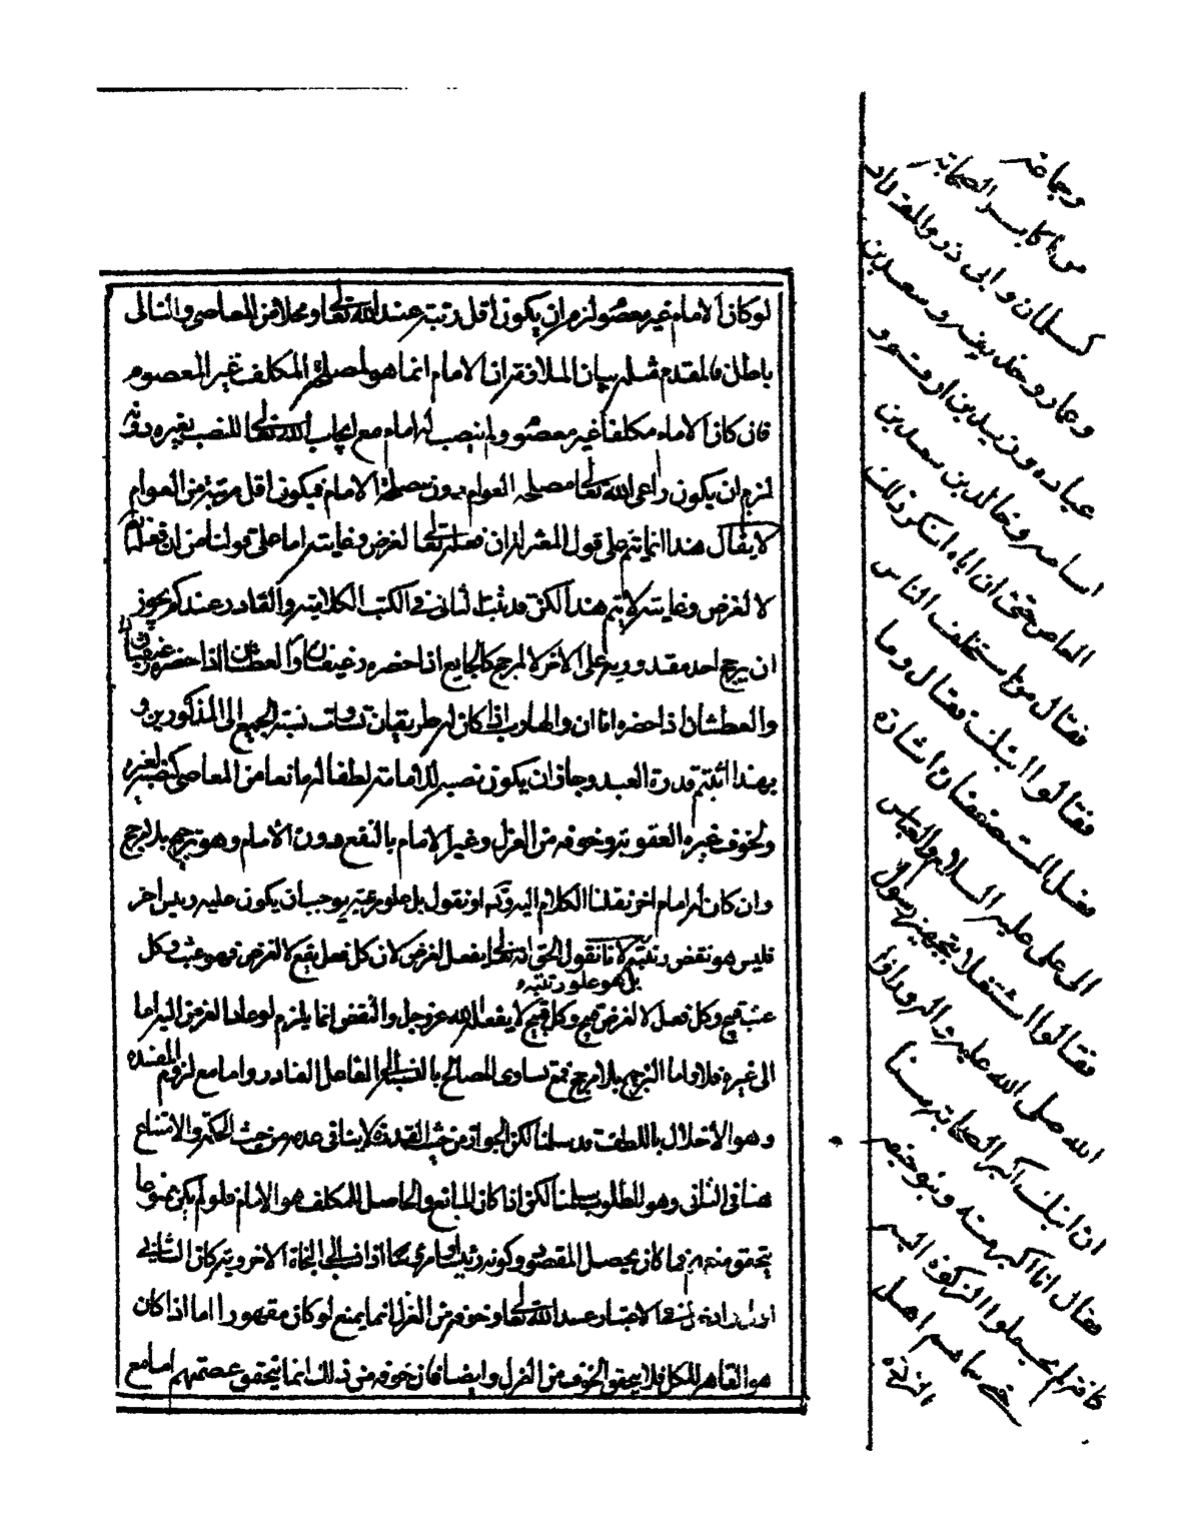 لو كان الامام غير معصوم لزم ان يكون اقل رتبة عند الله تعالى ومحلا من العاصى والتالى
باطل فالمقدم مثله بيان الملازمة ان الامام انما هو لمصلحة المكلف غير المعصوم
فان كان الامام مكلفا غير معصوم ولم ينصب له امام مع ايجاب الله تعالى النصب لغيره دونه
لزم ان يكون راعى الله تعالى مصلحة العوام دون مصلحة الامام فيكون اقل مرتبة من العوام
لا يقال هذا انما يتم على قول المعتزلة ان فعله تعالى لغرض وغاية اما على قولنا من ان فعله
لا لغرض وغاية لا يتم هذا لكن قد ثبت لنا فى الكتب الكلامية والقادر عندكم يجوز
ان يرجح احد مقدوريه على الآخر لا لمرجح كالجايع اذا حضره رغيفان
والعطشان اذا حضره اناان والهارب اذا كان له طريقان تساوت نسبة الجميع الى المذكورين و
بهذا اثبتم قدرة العبد وجاز ان يكون نصبه للامامة لطفا له مانعا من المعاصى كنصبه لغيره
ولخوف غيره العقوبة وخوفه من العزل وغير الامام بالنفع دون الامام وهو ترجيح بلا مرجح
وان كان له امام اخر نقلنا الكلام اليه او نقول بل علو مرتبته يوجب ان يكون عليه رئيس اخر
فليس هو نقض رتبته لانا نقول الحق انه تعالى يفعل لغرض لان كل فعل يقع لا لغرض فهو عبث وكل
بل هو علو رتبته
عبث قبيح وكل فعل لا لغرض قبيح وكل قبيح لا يفعله الله عز وجل والنقض انما يلزم لو عاد الغرض اليه اما
الى غيره فلا واما الترجيح بلا مرجح فمع تساوى المصالح بالنسبة الى الفاعل القادر واما مع لزوم المفسدة
وهو الاخلال باللطف قد سلمنا لكن الجواز من حيث القدرة لا ينافى عدمه من حيث الحكمة والامتناع
هنا فى الثانى وهو المطلوب سلمنا لكن اذا كان المانع والحاصل للمكلف هو الامام فلو لم يكن
يتحقق منه كان يحصل المقصود وكونه رئيسا اذا نسب الى النجاة الاخروية كان
الاعتبار عند الله تعالى وخوفه من العزل انما يمنع لو كان مقهورا اما اذا كان
هو القاهر للكل فلا يتحقق الخوف من العزل وايضا فان خوفه من ذلك انما يتحقق عصمتهم اما مع
وجماعة
من اكابر الصحابة
كسلمان وابى ذر والمقداد
وعمار وحذيفة وسعد بن
عباده وزيد بن ارقم و
اسامه وخالد بن سعيد بن
العاص حتى ان اباه انكر ذلك
فقال من استخلف الناس
فقالوا ابنك فقال وما
فعل المستضعفان اشارة
الى على عليه السلام والعباس
فقالوا اشتغلا بتجهيز رسول
الله صلى الله عليه واله
ان ابنك اكبر الصحابة سنا
فقال انا اكبر منه وبنو حنيفة
كافة لم يحملوا الزكوة اليه
حتى سماهم اهل
الردة